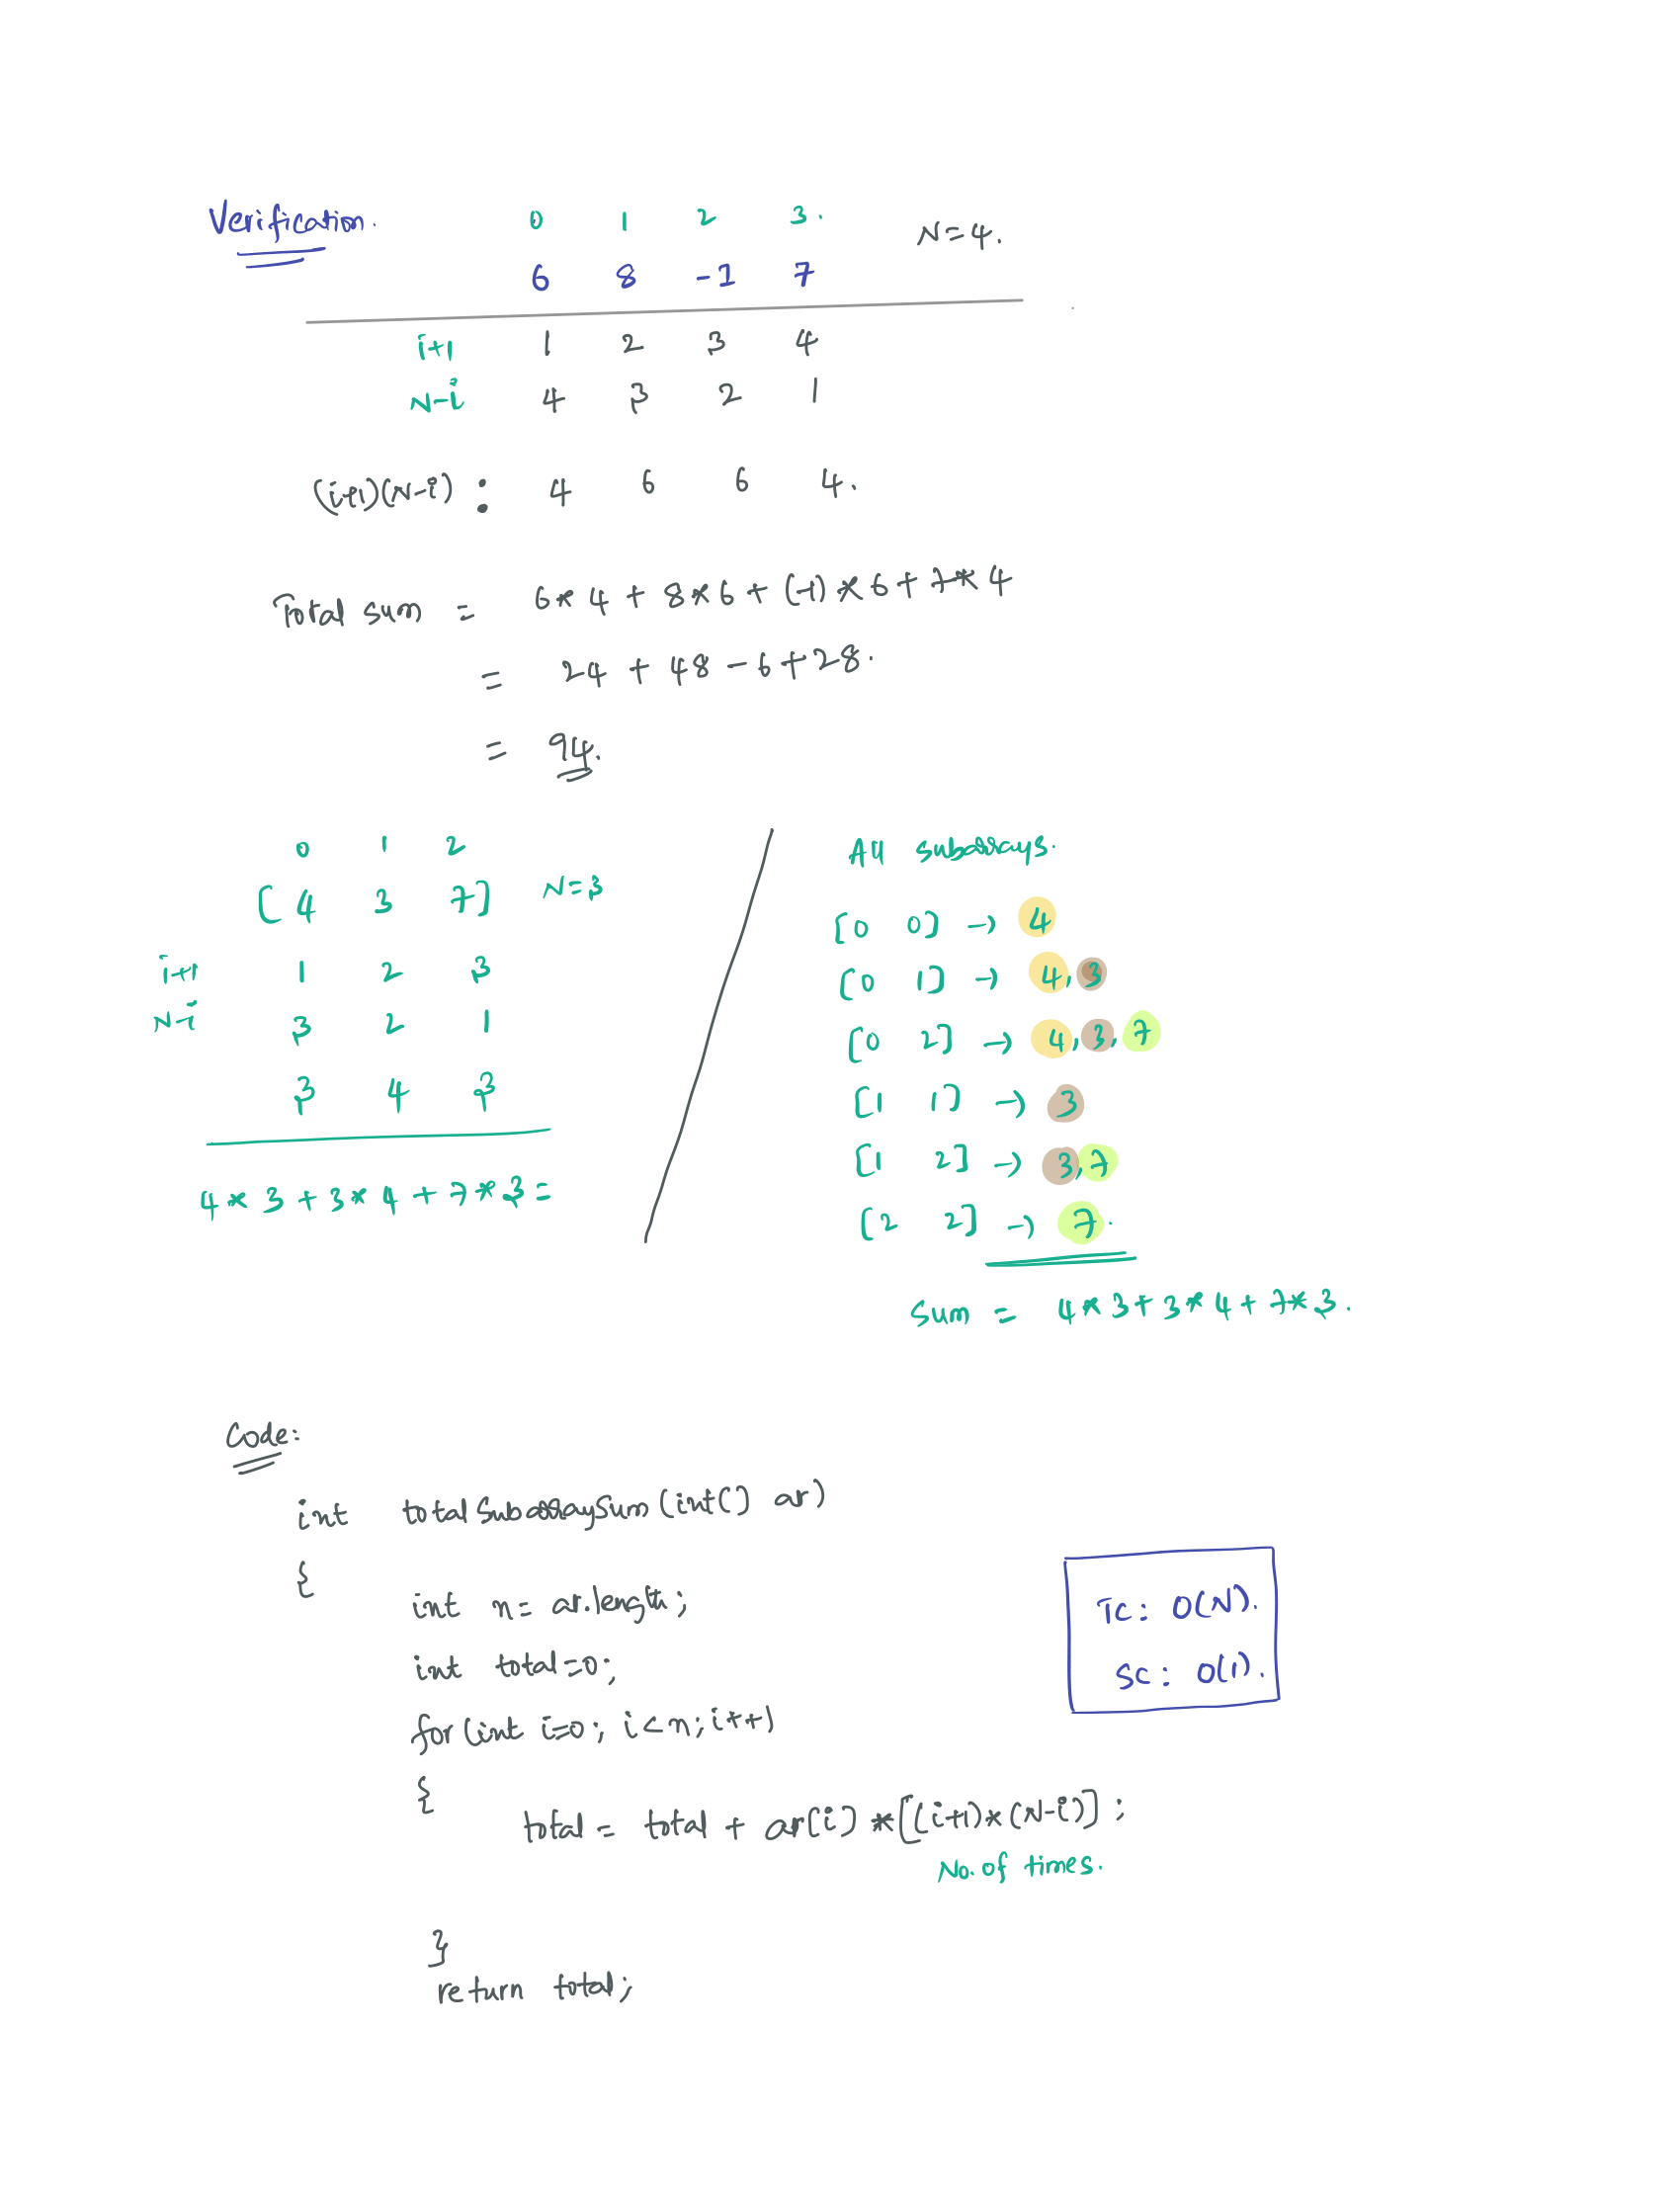 Verification. 0 1 2 3. N=4.
6 8 -1 7
i+1 1 2 3 4
N-i 4 3 2 1
(i+1)(N-i) : 4 6 6 4.
Total sum = 6*4 + 8*6 + (-1)*6 + 7*4
= 24 + 48 - 6 + 28.
= 94.
0 1 2
[4 3 7] N=3
i+1 1 2 3
N-i 3 2 1
3 4 3
4*3 + 3*4 + 7*3 =
All subarrays.
[0 0] → 4
[0 1] → 4, 3
[0 2] → 4, 3, 7
[1 1] → 3
[1 2] → 3, 7
[2 2] → 7.
Sum = 4*3 + 3*4 + 7*3.
Code:
int totalSubarraySum(int[] ar)
{
int n= ar.length;
int total=0;
for(int i=0; i<n; i++)
{
total = total + ar[i] *[(i+1)*(N-i)];
No. of times.
}
return total;
TC: O(N).
SC: O(1).